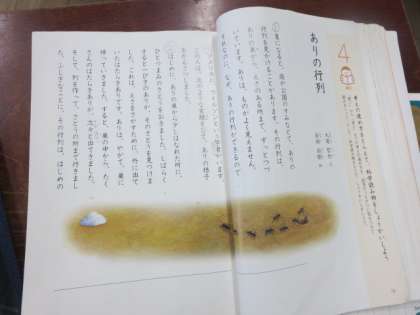 4
ありの行列
夏になると、庭や公園のすみなどで、ありの
行列を見かけることがあります。その行列は、
ありの巣から、えさのある所まで、ずっとつづ
いています。ありは、ものがよく見えません。
それなのに、なぜ、ありの行列ができるので
アメリカに、ウイルソンという学者がいます。
この人は、次のような実験をして、ありの様子
をかんさつしました。
はじめに、ありの巣から少しはなれた所に、
ひとつまみのさとうをおきました。しばらく
すると、一ぴきのありが、そのさとうを見つけま
した。これは、えさをさがすために、外に出て
いたはたらきありです。ありは、やがて、巣に
帰っていきました。すると、巣の中から、たく
さんのはたらきありが、次々と出てきました。
そして、列を作って、さとうの所まで行きまし
た。ふしぎなことに、その行列は、はじめの